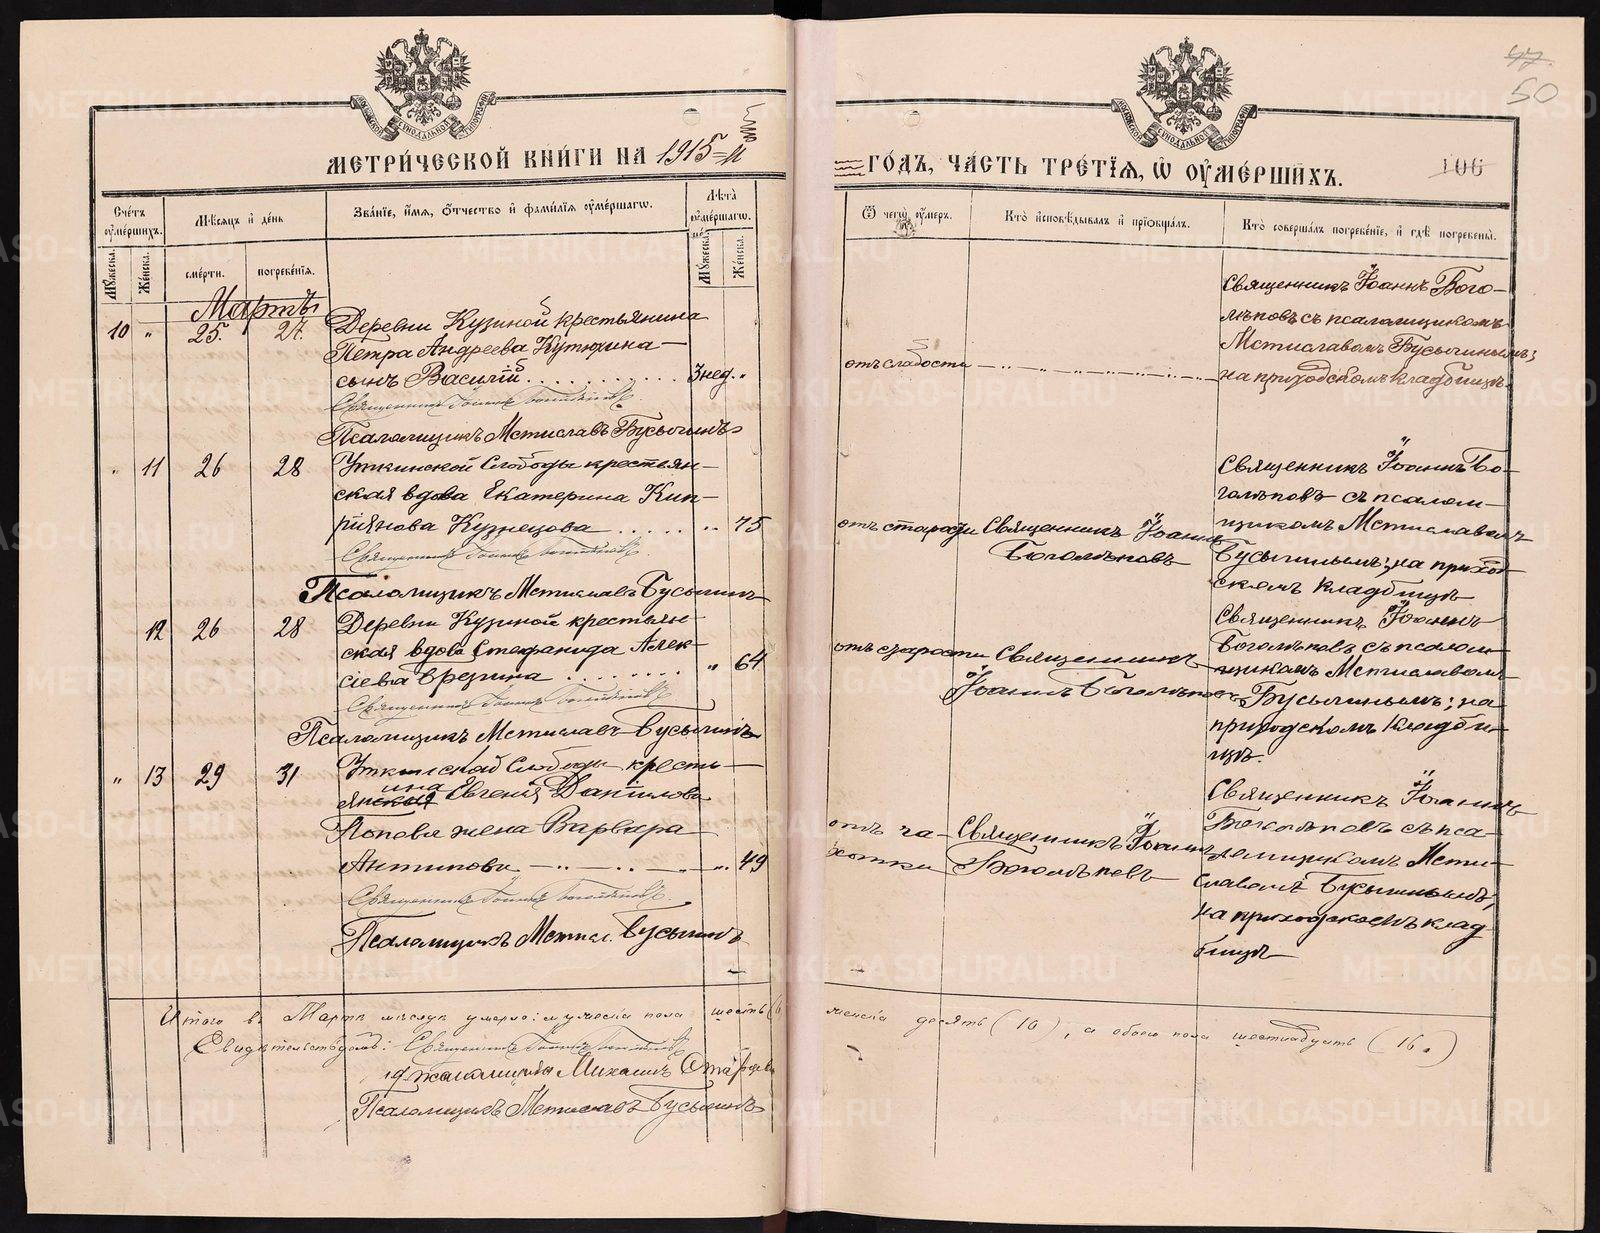 47.
50
МЕТРИ́ЧЕСКОЙ КНИ́ГИ НА 1915=й
ГО́ДЪ, ЧА́СТЬ ТРЕ́ТІЯ, Ѡ ОУМЕ́РШИХЪ.
106
Сче́тъ оуме́ршихъ.
Мѣ́сяцъ и де́нь
Зва́нїе, и́мя, о́тчество и фами́лїя оуме́ршагѡ.
Лѣ́та оуме́ршагѡ.
Му́жеска.
Же́нска.
сме́рти.
погребе́нїя.
Му́жеска.
Же́нска.
Ѿ чегѡ̀ оу́меръ.
Кто̀ и҆сповѣ́дывалъ и҆ прїѡбща́лъ.
Кто̀ соверша́лъ погребе́нїе, и҆ гдѣ̀ погребены̀.
Мартъ
10 „ 25. 27. Деревни Кузиной крестьянина
Петра Андреева Кутюхина
сынъ Василій . . . . . . . . . . . 3 нед. „
Священникъ Іоаннъ Боголѣповъ
Псаломщикъ Мстиславъ Бусыгинъ
отъ слабости
Священникъ Іоаннъ Бого-
лѣповъ съ псаломщикомъ
Мстиславомъ Бусыгинымъ;
на приходскомъ кладбищѣ
„ 11 26 28 Уткинской Слободы крестьян-
ская вдова Екатерина Кип-
ріянова Кузнецова . . . . . . „ 75
Священникъ Іоаннъ Боголѣповъ
Псаломщикъ Мстиславъ Бусыгинъ
отъ старости Священникъ Іоаннъ
Боголѣповъ
Священникъ Іоаннъ Бо-
голѣповъ съ псалом-
щикомъ Мстиславомъ
Бусыгинымъ; на приход-
скомъ кладбищѣ
12 26 28 Деревни Кузиной крестьян-
ская вдова Стефанида Алек-
сіева . . . . . . . . „ 64
Священникъ Іоаннъ Боголѣповъ
Псаломщикъ Мстиславъ Бусыгинъ
отъ старости Священникъ
Іоаннъ Боголѣповъ
Священникъ Іоаннъ
Боголѣповъ съ псалом-
щикомъ Мстиславомъ
Бусыгинымъ; на
приходскомъ кладби-
щѣ.
„ 13 29 31 Уткинской Слободы кресть-
янина Евгенія Данилова
Попова жена Варвара
Антипова „ 49
Священникъ Іоаннъ Боголѣповъ
Псаломщикъ Мстисл. Бусыгинъ
отъ ча-
хотки
Священникъ Іоаннъ
Боголѣповъ
Священникъ Іоаннъ
Боголѣповъ съ пса-
ломщикомъ Мсти-
славомъ Бусыгинымъ,
на приходскомъ клад
бищѣ
Итого въ Мартѣ мѣсяцѣ умерло: мужескаго пола шесть (6
женскаго десять (10), а обоего пола шестнадцать (16.)
Свидѣтельствуемъ: Священникъ Іоаннъ Боголѣповъ
Михаилъ
Псаломщикъ Мстиславъ Бусыгинъ
METRIKI.GASO-URAL.RU